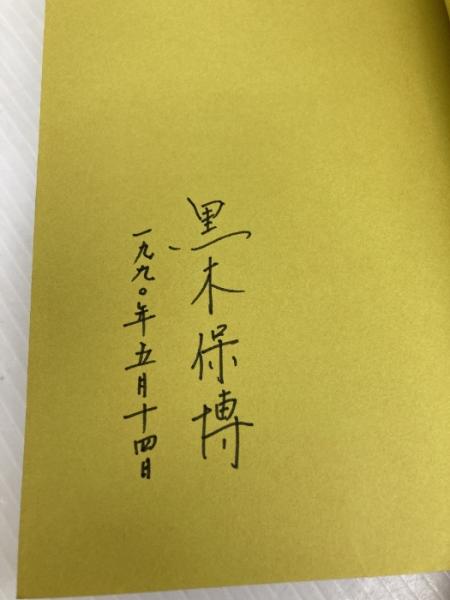 黒木保博
一九九〇年五月十四日